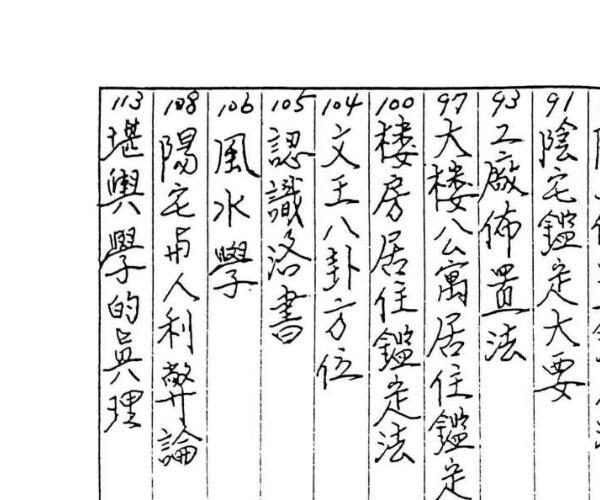 91 陰宅鑑定大要
93 工廠佈置法
97 大楼公寓居住鑑定
100 楼房居住鑑定法
104 文王八卦方位
105 認識洛書
106 風水學
108 陽宅與人利弊論
113 堪輿學的真理